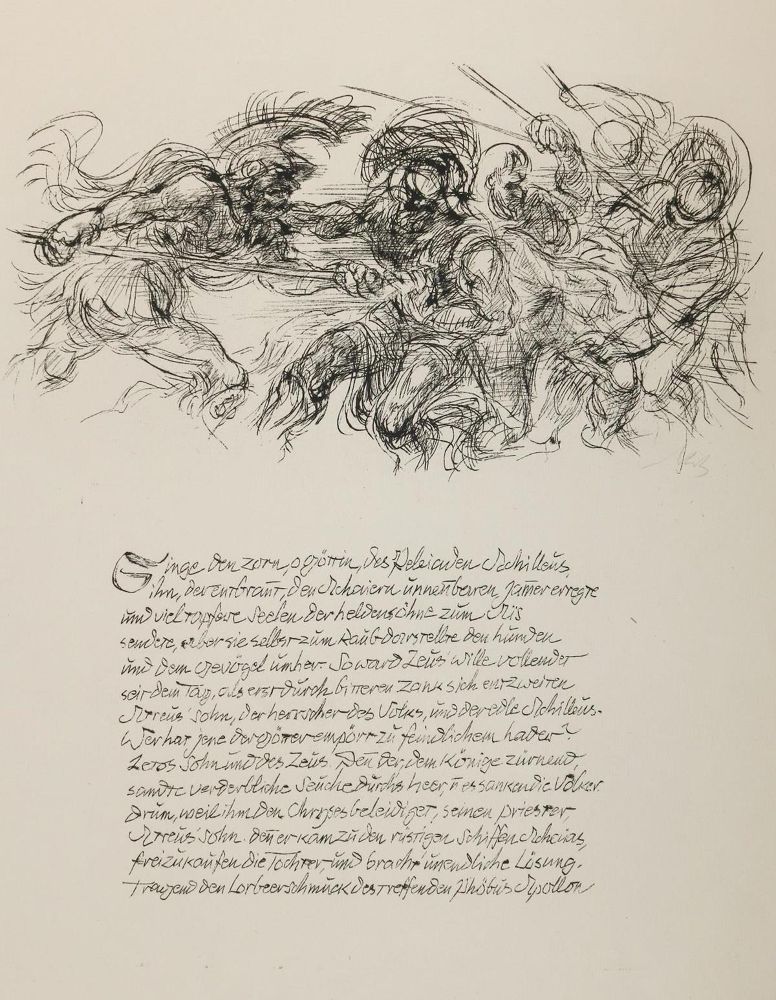 Singe den zorn, o göttin, des Peleiaden Achilleus,
ihn, der entbrant, den Achaiern unnenbaren jamer erregte
und viel tapfere seelen der heldensöhne zum Ais
sendete, aber sie selbst zum Raub darstellte den hunden
und dem gevögel umher. So ward Zeus' wille vollendet
seit dem Tag, als erst durch bitteren zank sich entzweiten
Atreus' sohn, der herrscher des Volks, und der edle Achilleus.
Wer hat jene der götter empört zu feindlichem hader?
Letos Sohn und des Zeus. Den der, dem Könige zürnend,
sandte verderbliche Seuche durchs heer, u es sanken die Völker
drum, weil ihm den Chryses beleidiget, seinen priester,
Atreus' sohn. den er kam zu den rüstigen schiffen Achaias,
freizukaufen die Tochter, und bracht' unendliche Lösung.
Tragend den Lorbeerschmuck des treffenden Phöbus Apollon